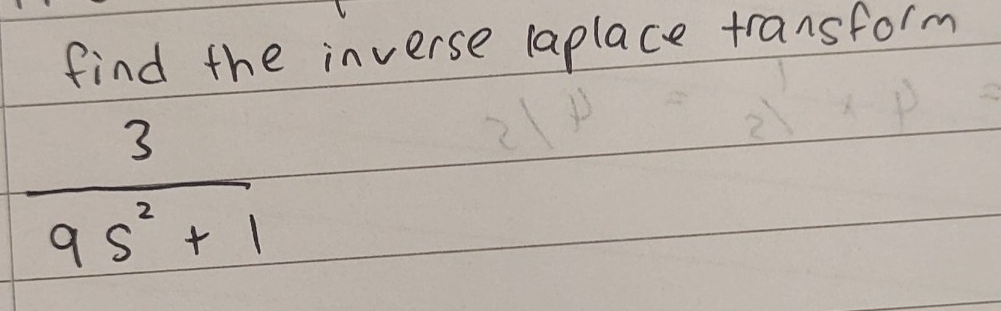 find the inverse laplace transform
3
9 s² + 1